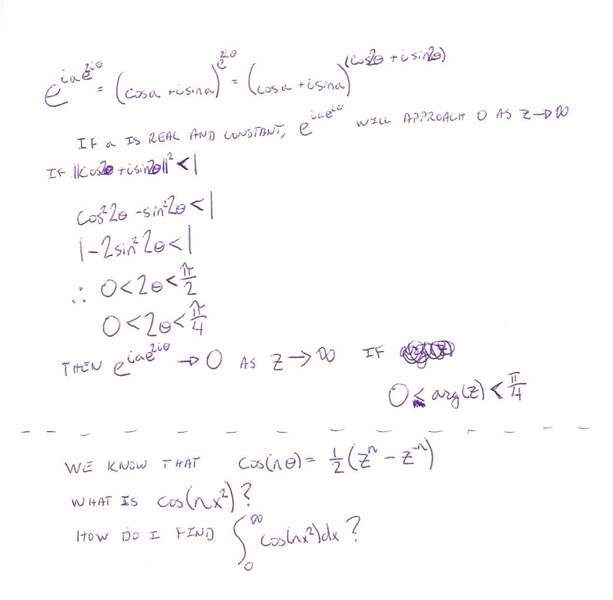 e^{iae^{2iθ}} = (cosa + isina)^{e^{2iθ}} = (cosa + isina)^{(cos2θ + isin2θ)}
IF a IS REAL AND CONSTANT, e^{iae^{iθ}} WILL APPROACH 0 AS Z→∞
IF ||cos2θ + isin2θ||² < 1
cos²2θ - sin²2θ < 1
1 - 2sin²2θ < 1
∴ 0 < 2θ < π/2
0 < 2θ < π/4
THEN e^{iae^{2iθ}} → 0 AS Z → ∞ IF
0 ≤ arg(z) < π/4
WE KNOW THAT cos(nθ) = 1/2 (z^n - z^{-n})
WHAT IS cos(nx²)?
HOW DO I FIND ∫_0^∞ cos(nx²)dx?